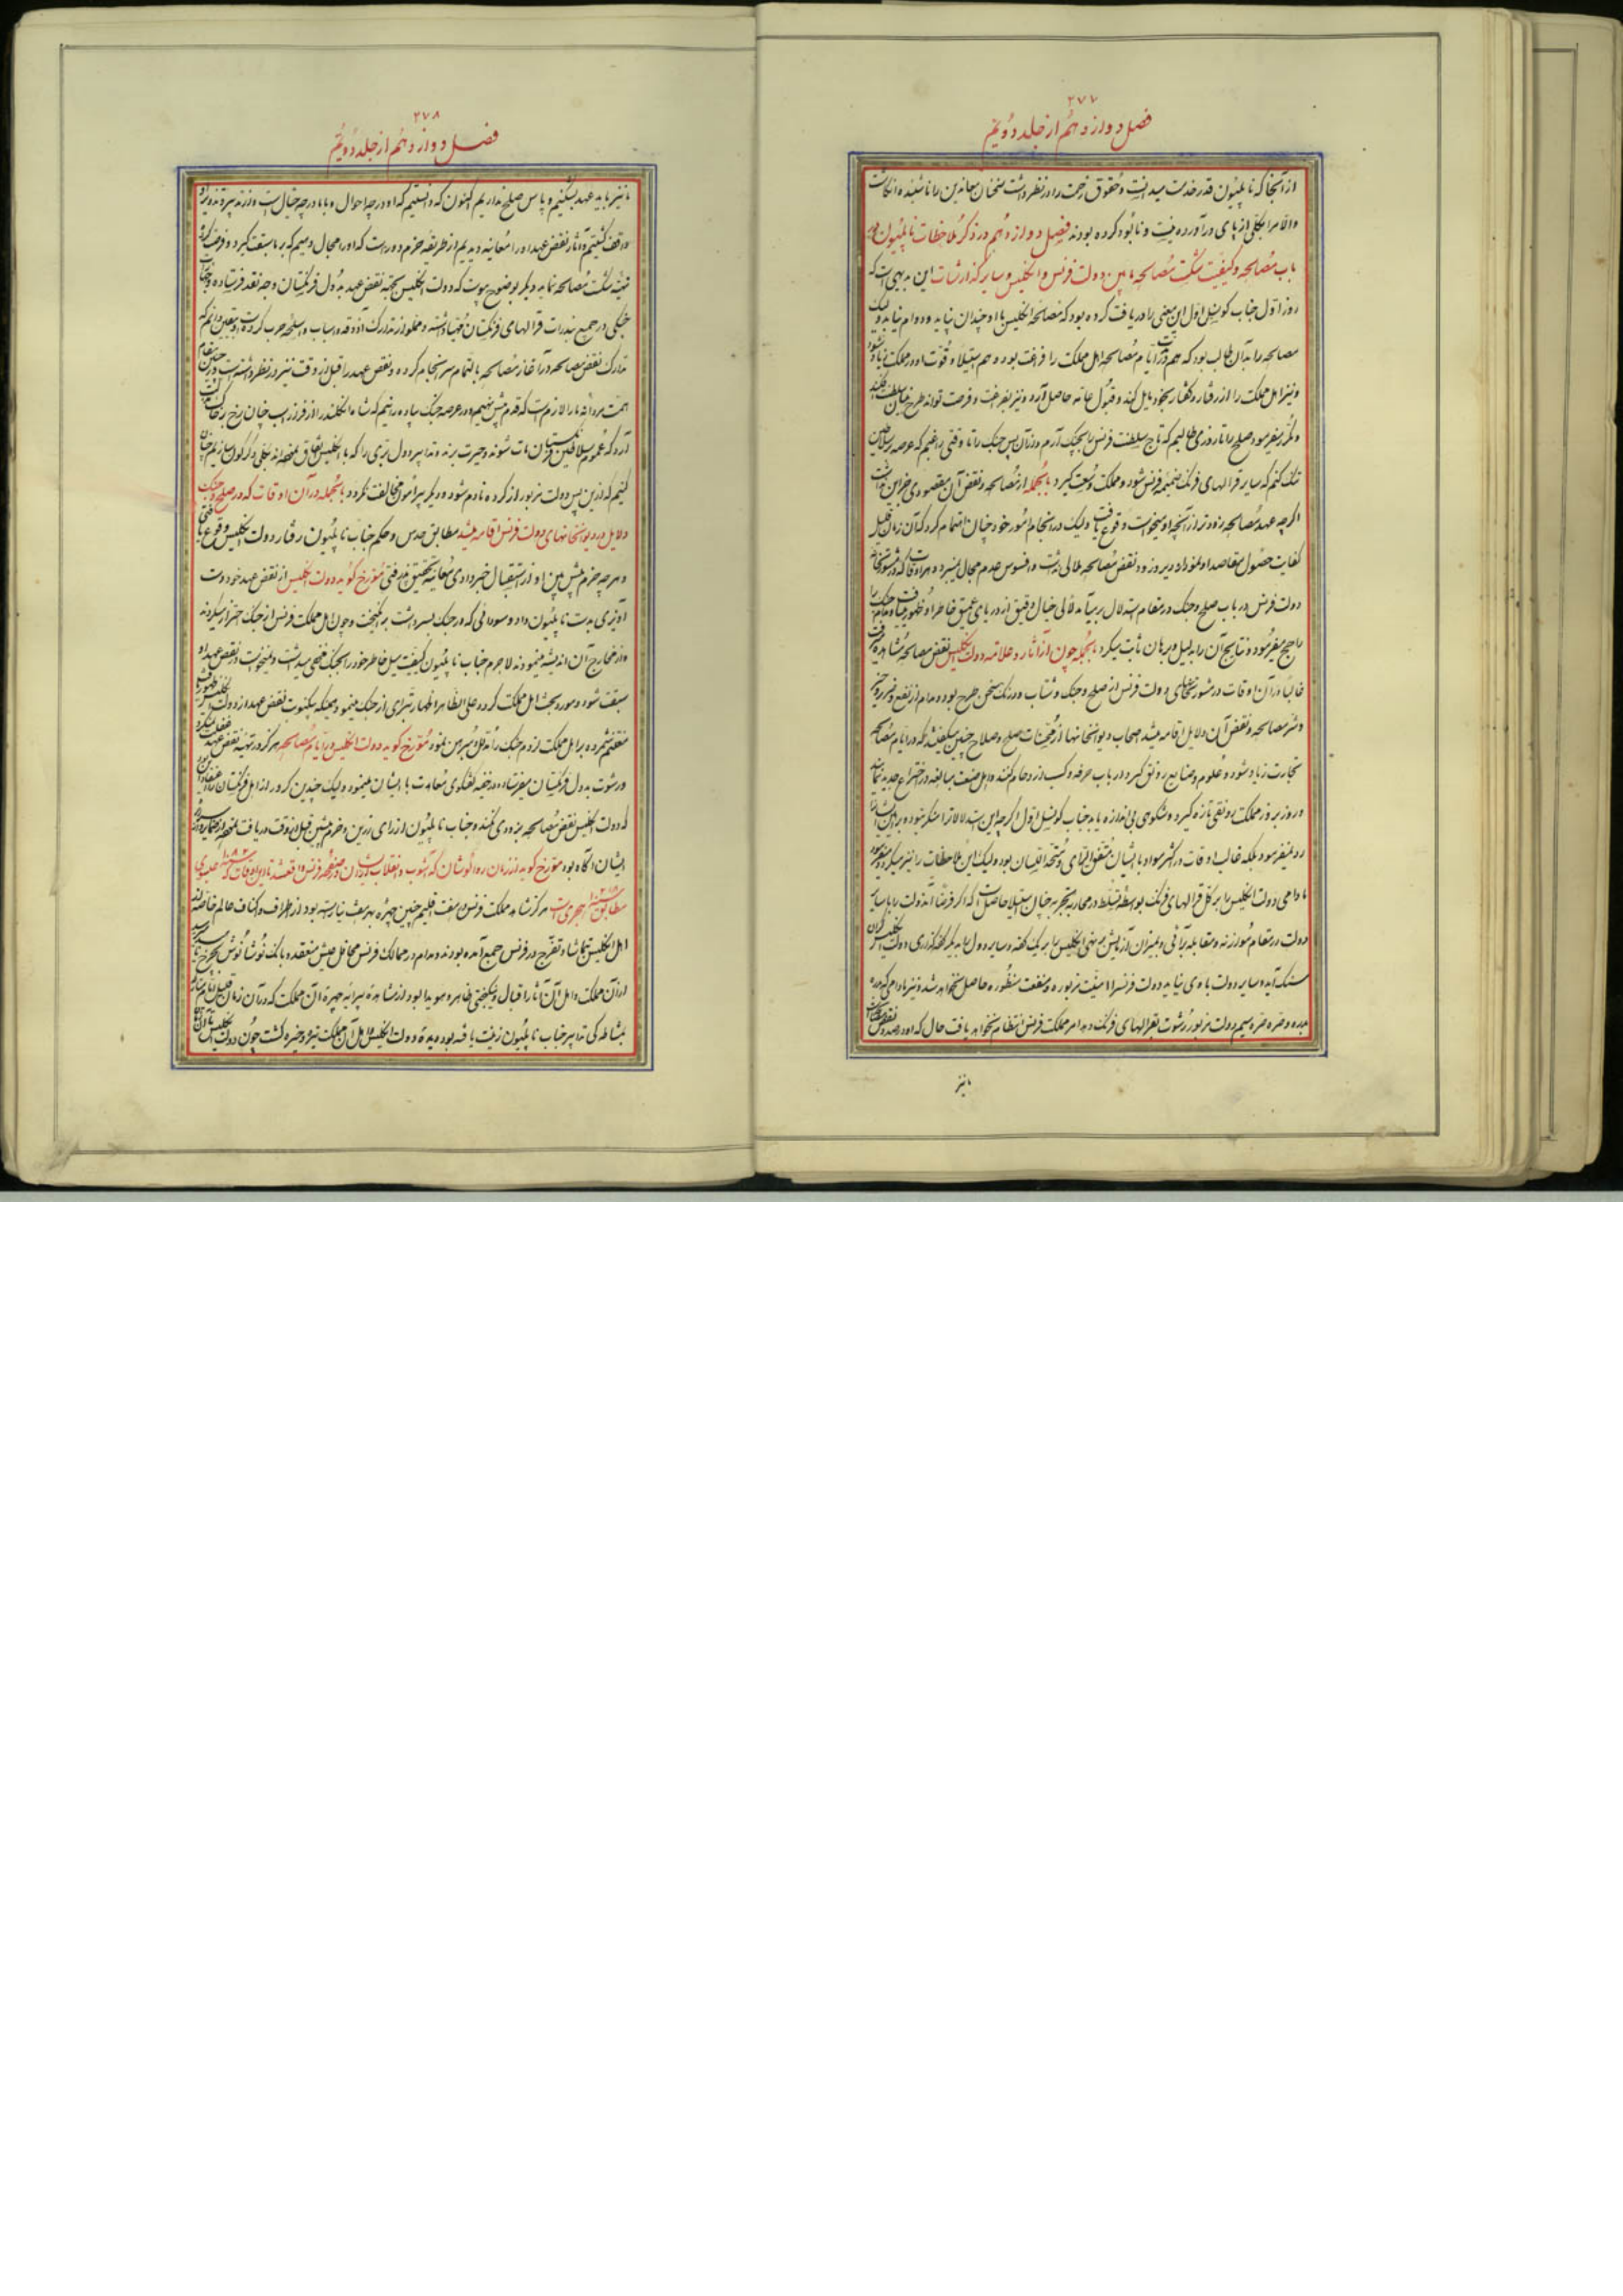 ۲۷۷
فصل دوازدهم از جلد دویّم
از آنجا که ناپلیون قدر خدمت میدانست و حقوق زحمت را در نظر داشت سخنان معاندین را ناشنیده انگاشت
والا مرا بکلی از پای درآورده نیست و نابود کرده بودند فصل دوازدهم در ذکر ملاحظات ناپلیون در
باب مصالحه و کیفیت شکست مصالحه مابین دولت فرنس و انگلیس و سایر گذارشات این بدیهی است که
روز اول جناب کونسل اول این معنی را دریافت کرده بود که مصالحه انگلیس با او چندان نپاید و دوام نیابد ولیک
مصالحه را بدآن طالب بود که هم در ایام مصالحه اهل مملکت را فراغت بود و هم استیلا و قوت او در مملکت زیاد شود
و نیز اهل مملکت را از رفتار و گفتار بخود مایل کند و قبول عامه حاصل آید و نیز بفراغت و فرصت تواند طرح سلطنت
و مکرر میفرمود صلح را تا روزی طالبیم که تاج سلطنت فرنس را بچنک آرم و زآن پس جنک را تا وقتی راغبیم که عرصه بر سلاطین
تنک کنم که سایر قرالهای فرنک ضمیمه فرنس شود و مملکت وسعت گیرد بالجمله از مصالحه و نقض آن مقصودی جز این نداشت
اگرچه عهد مصالحه زودتر از آنچه او میخواست وقوع یافت ولیک در انجام امور خود چنان اهتمام کرد که آن زمان قلیل
کفایت حصول مقاصد او نمود از دیر و زود نقض مصالحه ملالی نداشت و افسوس عدم مجال نمیبرد
دولت فرنس در باب صلح و جنک در مقام استدلال بر میآمد لآلی خیال دقیق از دریای عمیق خاطر او ظهور مییافت
راجح میفرمود و نتایج آن را بدلیل و برهان ثابت میکرد بالجمله چون از آثار و علامه دولت انگلیس نقض مصالحه مشاهده
غالبا در آن اوقات در مشورتخانهای دولت فرنس از صلح و جنک و شتاب و درنک سخن طرح بود و مدام از نفع و ضرر و خیر
و شر مصالحه و نقض آن دلایل اقامه میشد اصحاب دیوانخانها از محسنات صلح و صلاح چنین میگفتند که در ایام مصالحه
تجارت زیاد شود و علوم و صنایع رونق گیرد در باب حرفه و کسب ازدحام کنند و اهل صنعت مبالغه در اختراع جدیده نمایند
و روز بروز مملکت رونقی تازه گیرد و شکوهی بی اندازه یابد جناب کونسل اول اگرچه این استدلالات را منکر نبوده بر ایشان
رد نمیفرمود بلکه غالب اوقات در اکثر مواد با ایشان متفق الرای و متحد اللسان بود ولیک این ملاحظات را نیز میکرد و میفرمود
مادامی دولت انگلیس را بر کل قرالهای فرنک بواسطه تسلط در محاربه بحریه چنان استیلا حاصل است که اگر فرضا آندولت را با سایر
دولت در مقام موازنه و مقابله برآئی و بمیزان آزمایش بر سنجی انگلیس را بر یک کفه و سایر دول را بدیگر کفه گذاری دولت انگلیس گران
سنک آید و سایر دولت با وی نپاید دولت فرنس را امنیت مزبوره و منفعت منظوره حاصل نخواهد شد و نیز مادامی که
بدره و صره صره سیم دولت مزبور رشوت بقرالهای فرنک دهد امر مملکت فرنس انتظام نخواهد یافت حال که او در صدد نقض
ما نیز
۲۷۸
فصل دوازدهم از جلد دویّم
ما نیز باید عهد بشکنیم و پاس صلح نداریم اکنون که دانستیم که او در چه احوال و با ما در چه خیال است و از تدبیر و تدویر او
واقف گشتیم و آثار نقض عهد او را معاینه دیدیم از طریقه حزم دور است که او را مجال دهیم که بر ما سبقت گیرد و فرصت کرده
تهیه شکست مصالحه نماید دیگر بوضوح پیوست که دولت انگلیس بجهة نقض عهد به دول فرنکستان وجه نقد فرستاده و جهازات
جنگی در جمیع بندرات قرالهای فرنکستان مهیا داشته و مملو از تدارک آذوقه و اسباب و اسلحه حرب کرده است و یقین دانیم که
تدارک نقض مصالحه در آغاز مصالحه بالتمام سرانجام کرده و نقض عهد را قبل از وقت نیز در نظر داشته است و در این حین مقام
همت مردانه ما را لازم است که قدم پیش نهیم و در عرصه جنک پیاده رانیم که شاه انگلند را از فرزین اسب چنان رخ بر خاک
آرد که عموم سلاطین فرنکستان مات شوند و حیرت برند و تدابیر دول بری را که با انگلیس اتفاق نمودهاند بکلی دگرگون سازیم چنان
کنیم که از این پس دولت مزبور از کرده نادم شود و دیگر پیرامون مخالفت نگردد بالجمله در آن اوقات که در صلح و جنک
دلایل در دیوانخانهای دولت فرنس اقامه میشد مطابق حدس و حکم جناب ناپلیون رفتار دولت انگلیس وقوع یافتی
و هرچه حزم پیش بین او از استقبال خبر دادی معاینه تحقیق پذیرفتی مورخ گوید دولت انگلیس از نقض عهد خود دست
آویزی بدست ناپلیون داد و سودائی که در جنک بسر داشت برانگیخت و چون اهل مملکت فرنس از جنک احتراز میکردند
و از مخارج آن اندیشه مینمودند لاجرم جناب ناپلیون کیفیت میل خاطر خود را بجنک مخفی میداشت و نمیخواست در نقض عهد او
سبقت شود و مورد بحث اهل مملکت گردد علی الظاهر اظهار تبرای از جنک مینمود و همینکه یکنوبت نقض عهد از دولت انگلیس ظهور یافت
مغتنم شمرده بر اهل مملکت لزوم جنک را مدلل و مبرهن نمود مورخ گوید دولت انگلیس در ایام مصالحه هرگز در تهیه نقض عهد غفلت نمیکرد
و رشوت به دول فرنکستان میفرستاد و در خفیه گفتگوی معاهدت با ایشان مینمود ولیک چندین کرور از اهل فرنکستان را اعتقاد این بود
که دولت انگلیس نقض مصالحه بزودی نکنند و جناب ناپلیون از رای زرین و حزم پیش بین قبل از وقت دریافت
ایشان آگاه بود مورخ گوید از زمان رده لوشان که آشوب و انقلاب شدید در صفحه فرنس واقع شد تا این اوقات که سنه ۱۸۰۲ عیسوی
مطابق سنه ۱۲۱۸ هجری است هرگز شاهد مملکت فرنس در هفت اقلیم چنین چهره بهر هفت نیاراسته بود از اطراف و اکناف عالم خاصه
اهل انگلیس بتماشا و تفرج در فرنس جمع آمده بودند و مدام در ممالک فرنس محافل عیش منعقد و بانک نوشانوش بچرخ
از آن مملکت و اهل آن آثار اقبال و نیکبختی ظاهر و هویدا بود از مشاهده پیرایه چهره آن مملکت که در آن زمان قلیل
بمشاطه کی تدابیر جناب ناپلیون زینت یافته بود دیده دولت انگلیس و اهل آن مملکت تیره و خیره گشت چون دولت انگلیس